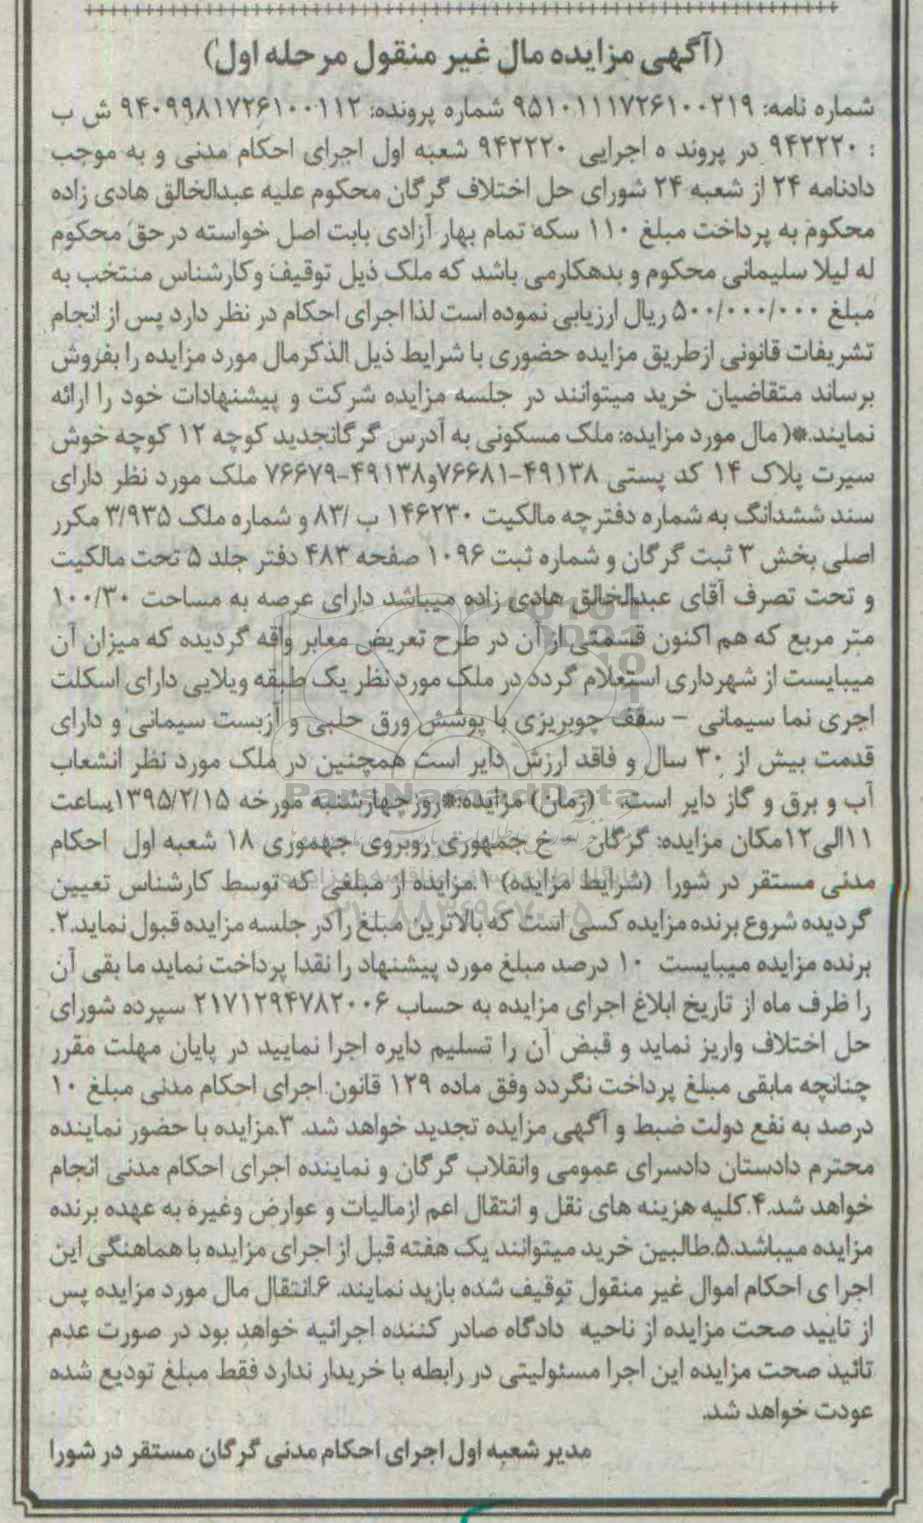 (آگهی مزایده مال غیر منقول مرحله اول)
شماره نامه: ۹۵۱۰۱۱۱۷۲۶۱۰۰۲۱۹ شماره پرونده: ۹۴۰۹۹۸۱۷۲۶۱۰۰۱۱۲ ش ب
: ۹۴۲۲۲۰ در پروند ه اجرایی ۹۴۲۲۲۰ شعبه اول اجرای احکام مدنی و به موجب
دادنامه ۲۴ از شعبه ۲۴ شورای حل اختلاف گرگان محکوم علیه عبدالخالق هادی زاده
محکوم به پرداخت مبلغ ۱۱۰ سکه تمام بهار آزادی بابت اصل خواسته درحق محکوم
له لیلا سلیمانی محکوم و بدهکارمی باشد که ملک ذیل توقیف وکارشناس منتخب به
مبلغ ۵۰۰/۰۰۰/۰۰۰ ریال ارزیابی نموده است لذا اجرای احکام در نظر دارد پس از انجام
تشریفات قانونی ازطریق مزایده حضوری با شرایط ذیل الذکرمال مورد مزایده را بفروش
برساند متقاضیان خرید میتوانند در جلسه مزایده شرکت و پیشنهادات خود را ارائه
نمایند.*( مال مورد مزایده: ملک مسکونی به آدرس گرگانجدید کوچه ۱۲ کوچه خوش
سیرت پلاک ۱۴ کد پستی ۴۹۱۳۸-۷۶۶۸۱و۴۹۱۳۸-۷۶۶۷۹ ملک مورد نظر دارای
سند ششدانگ به شماره دفترچه مالکیت ۱۴۶۲۳۰ ب /۸۳ و شماره ملک ۳/۹۳۵ مکرر
اصلی بخش ۳ ثبت گرگان و شماره ثبت ۱۰۹۶ صفحه ۴۸۳ دفتر جلد ۵ تحت مالکیت
و تحت تصرف آقای عبدالخالق هادی زاده میباشد دارای عرصه به مساحت ۱۰۰/۳۰
متر مربع که هم اکنون قسمتی از آن در طرح تعریض معابر واقه گردیده که میزان آن
میبایست از شهرداری استعلام گردد در ملک مورد نظر یک طبقه ویلایی دارای اسکلت
اجری نما سیمانی - سقف چوبریزی با پوشش ورق حلبی و آزبست سیمانی و دارای
قدمت بیش از ۳۰ سال و فاقد ارزش دایر است همچنین در ملک مورد نظر انشعاب
آب و برق و گاز دایر است. (زمان) مزایده:*روزچهارشنبه مورخه ۱۳۹۵/۲/۱۵ساعت
۱۱الی۱۲مکان مزایده: گرگان - خ جمهوری روبروی جهموری ۱۸ شعبه اول احکام
مدنی مستقر در شورا (شرایط مزایده) ۱.مزایده از مبلغی که توسط کارشناس تعیین
گردیده شروع برنده مزایده کسی است که بالاترین مبلغ رادر جلسه مزایده قبول نماید.۲.
برنده مزایده میبایست ۱۰ درصد مبلغ مورد پیشنهاد را نقدا پرداخت نماید ما بقی آن
را ظرف ماه از تاریخ ابلاغ اجرای مزایده به حساب ۲۱۷۱۲۹۴۷۸۲۰۰۶ سپرده شورای
حل اختلاف واریز نماید و قبض آن را تسلیم دایره اجرا نمایید در پایان مهلت مقرر
چنانچه مابقی مبلغ پرداخت نگردد وفق ماده ۱۲۹ قانون اجرای احکام مدنی مبلغ ۱۰
درصد به نفع دولت ضبط و آگهی مزایده تجدید خواهد شد. ۳.مزایده با حضور نماینده
محترم دادستان دادسرای عمومی وانقلاب گرگان و نماینده اجرای احکام مدنی انجام
خواهد شد.۴.کلیه هزینه های نقل و انتقال اعم ازمالیات و عوارض وغیره به عهده برنده
مزایده میباشد.۵.طالبین خرید میتوانند یک هفته قبل از اجرای مزایده با هماهنگی این
اجرا ی احکام اموال غیر منقول توقیف شده بازید نمایند. ۶.انتقال مال مورد مزایده پس
از تایید صحت مزایده از ناحیه دادگاه صادر کننده اجرائیه خواهد بود در صورت عدم
تائید صحت مزایده این اجرا مسئولیتی در رابطه با خریدار ندارد فقط مبلغ تودیع شده
عودت خواهد شد.
مدیر شعبه اول اجرای احکام مدنی گرگان مستقر در شورا
ParsNamadData